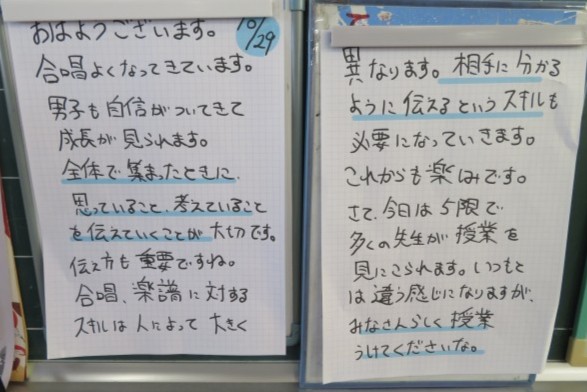 おはようございます。
10/29
合唱よくなってきています。
男子も自信がついてきて
成長が見られます。
全体で集まったときに、
思っていること、考えていること
を伝えていくことが大切です。
伝え方も重要ですね。
合唱、楽譜に対する
スキルは人によって大きく
異なります。相手に分かる
ように伝えるというスキルも
必要になっていきます。
これからも楽しみです。
さて、今日は5限で
多くの先生が授業を
見にこられます。いつもと
は違う感じになりますが、
みなさんらしく授業
うけてくださいな。